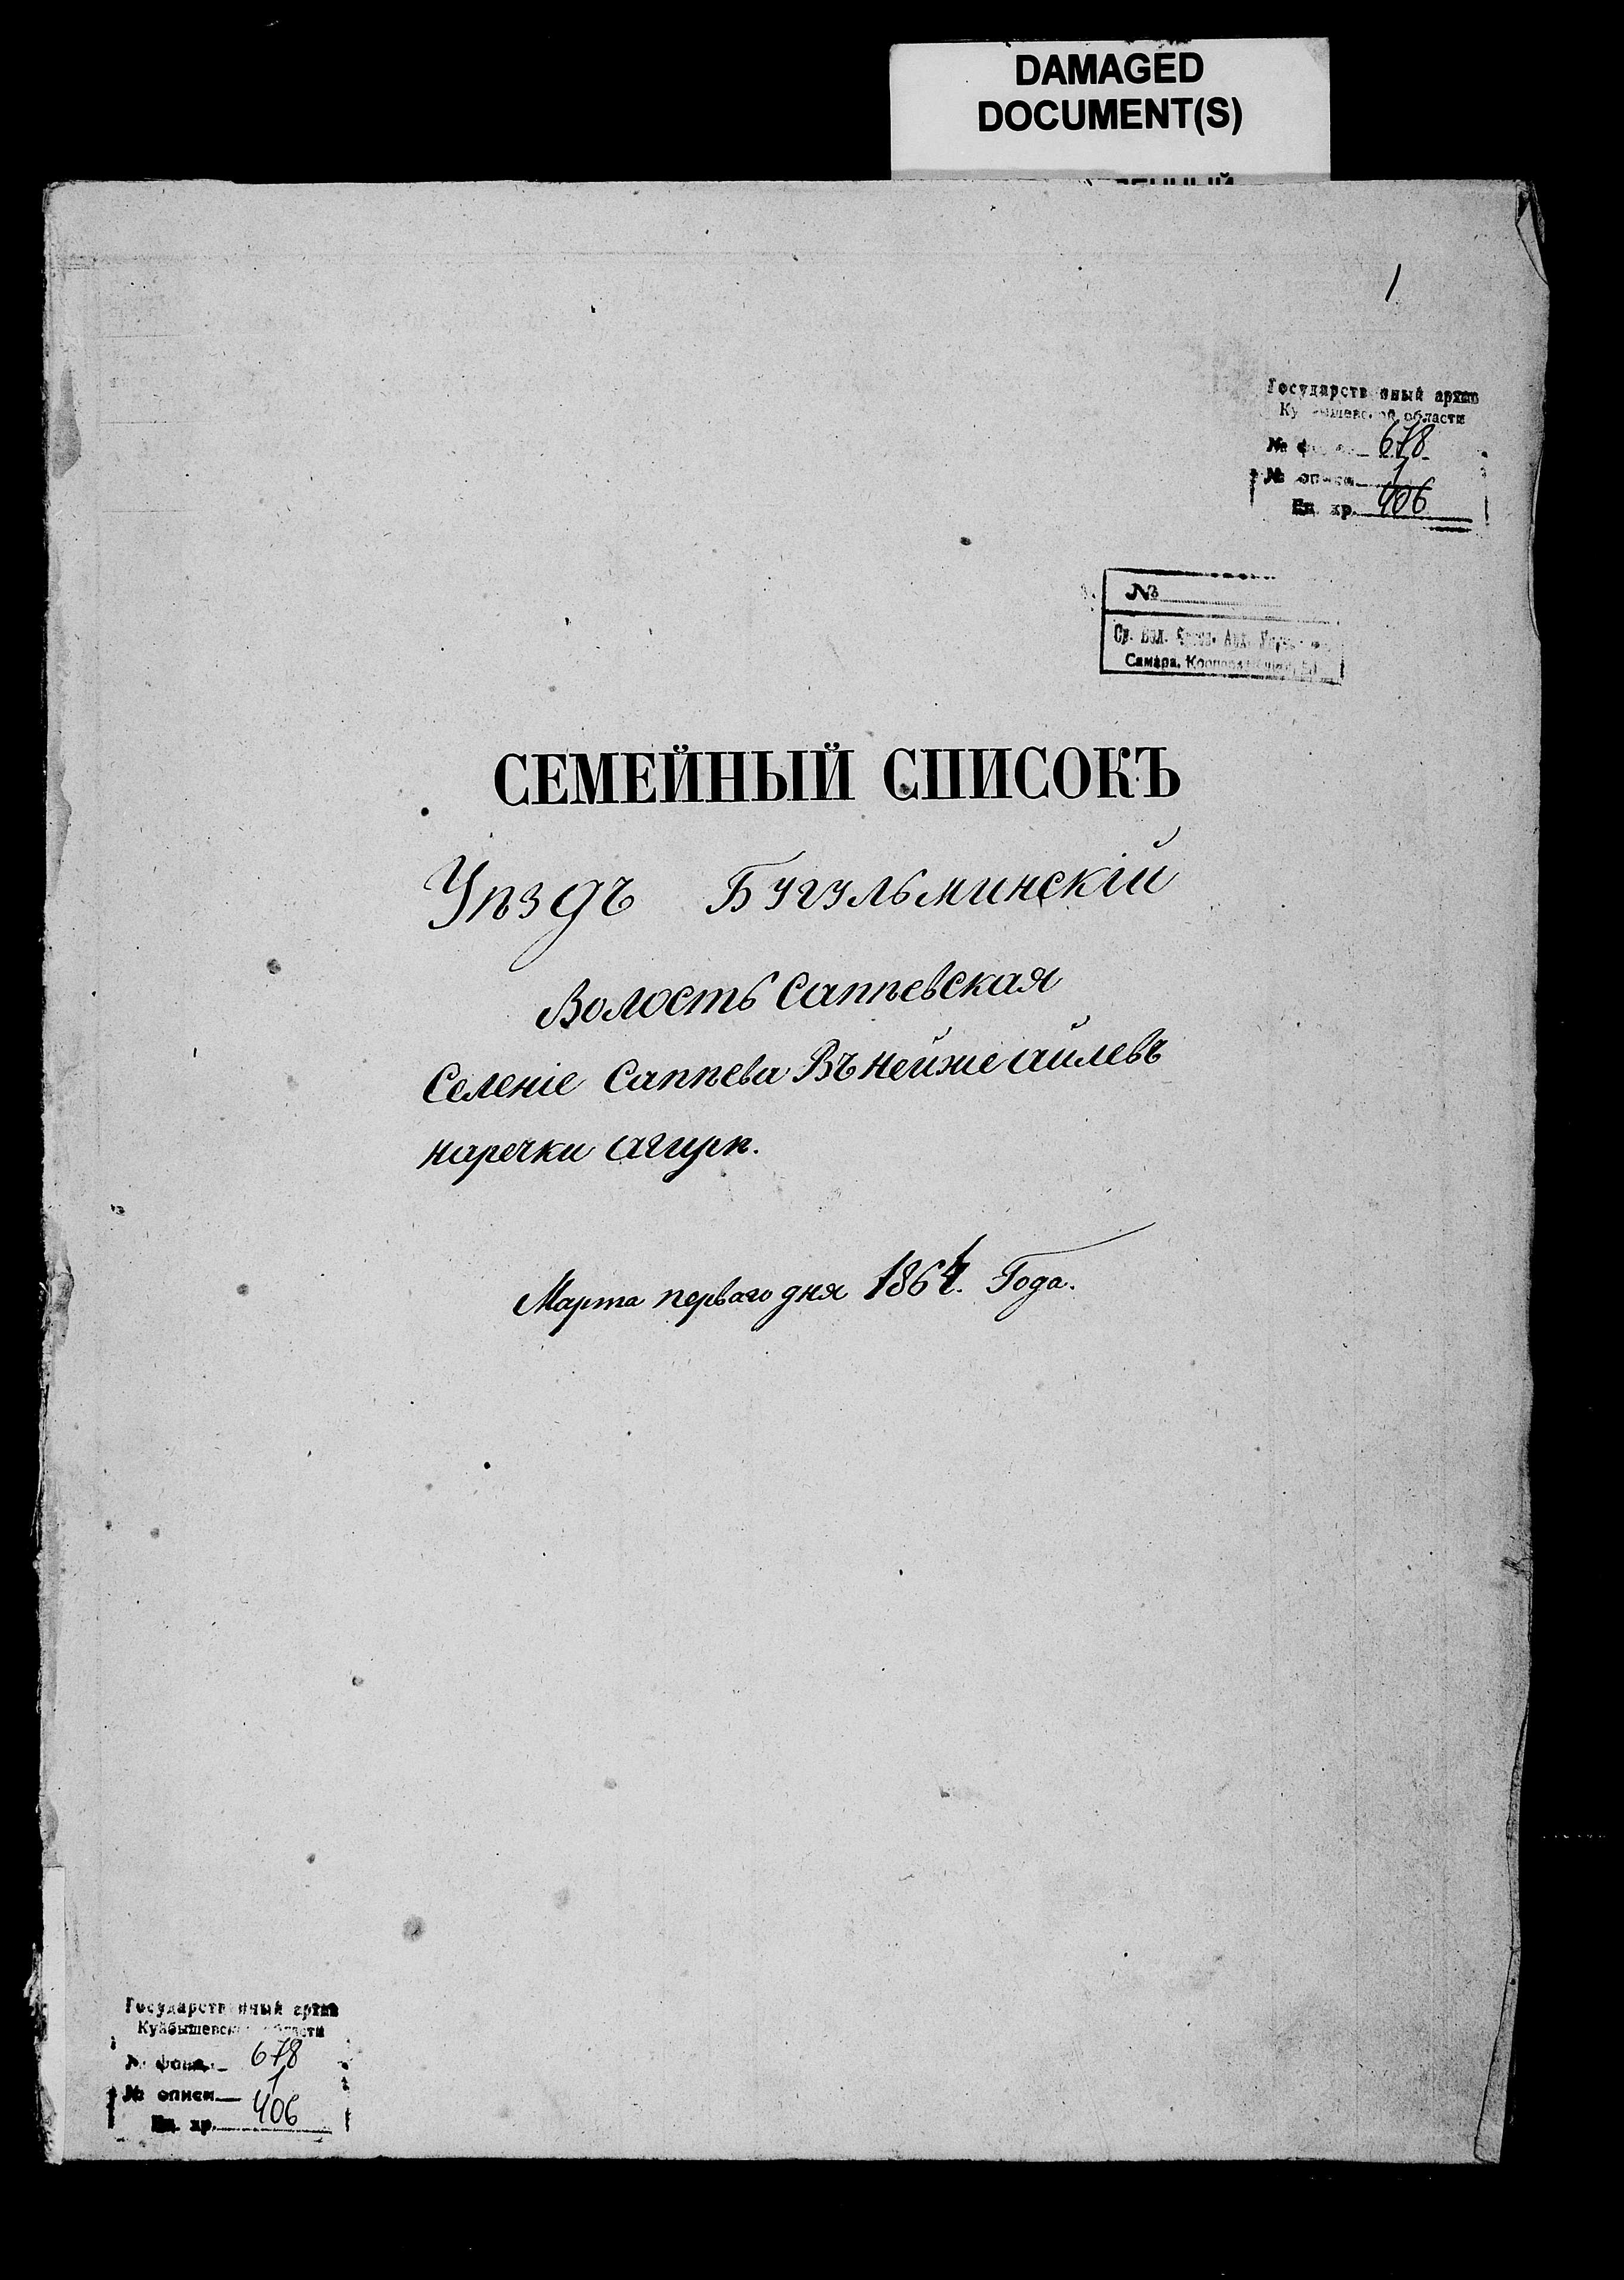 DAMAGED
DOCUMENT(S)
1
Государственный архив
Куйбышевской области
№ фонда 678
№ описи 1
Ед. хр. 406
№
Самара,
СЕМЕЙНЫЙ СПИСОКЪ
Уѣздъ Бугульминскій
Волость Сапѣевская
Селеніе Сапѣева Въ нейже
наречки
Марта перваго дня 1864. Года.
Государственный архив
Куйбышевской области
№ фонда 678
№ описи 1
Ед. хр. 406